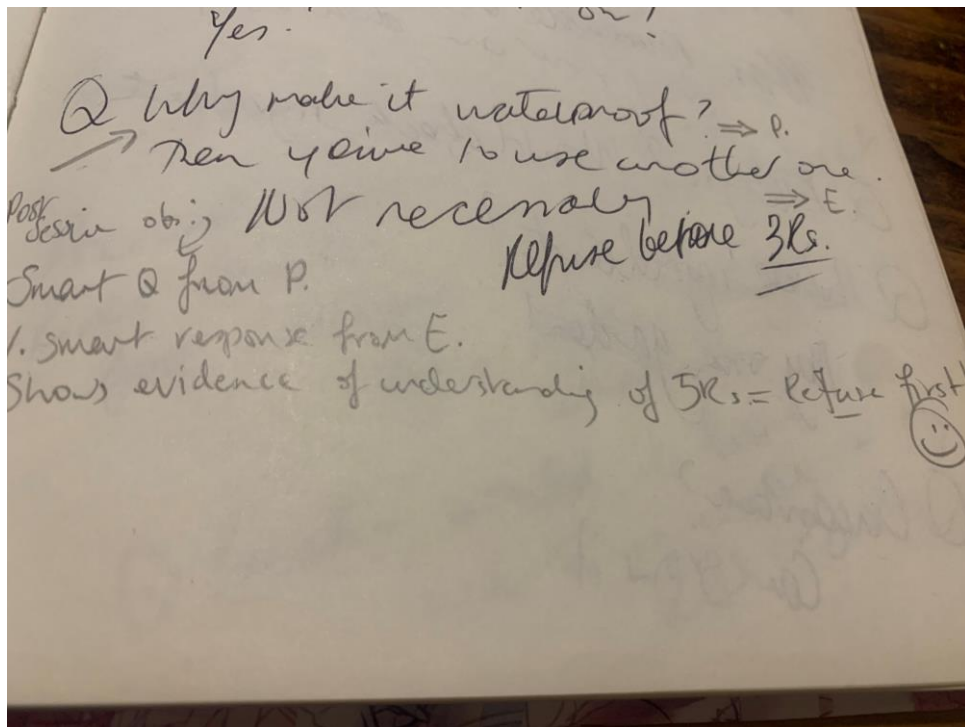 Yes.
Q Why make it waterproof? ⇒ P.
Then you have to use another one.
Not necessary ⇒ E.
Refuse before 3Rs.
Post session obs:
Smart Q from P.
1. Smart response from E.
Shows evidence of understanding of 5Rs = Refuse first!